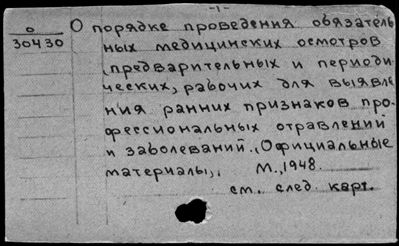 -1-
О порядке проведения обязатель
0
30430
ных медицинских осмотров
(предварительных и периоди-
ческих) рабочих для выявле
ния ранних признаков про-
фессиональных отравлений
и заболеваний. „Официальные
материалы„. М., 1948.
см. след. карт.